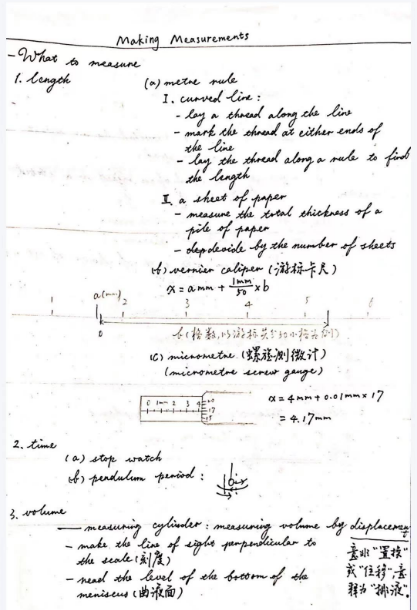 Making Measurements
- What to measure
1. length
(a) metre rule
I. curved line:
- lay a thread along the line
- mark the thread at either ends of
the line
- lay the thread along a rule to find
the length
II. a sheet of paper
- measure the total thickness of a
pile of paper
- by the number of sheets
(b) vernier caliper (游标卡尺)
x = a mm + 1mm/50 × b
a(mm)
2 3 4 5 6
0
b(格数,以游标共50小格为例)
(c) micrometre (螺旋测微计)
(micrometre screw gauge)
0 1mm 2 3 4
20
17
15
x = 4mm + 0.01mm × 17
= 4.17mm
2. time
(a) stop watch
(b) pendulum period:
3. volume
— measuring cylinder: measuring volume by displacement
- make the line of sight perpendicular to
the scale (刻度)
- read the level of the bottom of the
meniscus (曲液面)
意非"置换"
或"位移",意
释为"排液"。